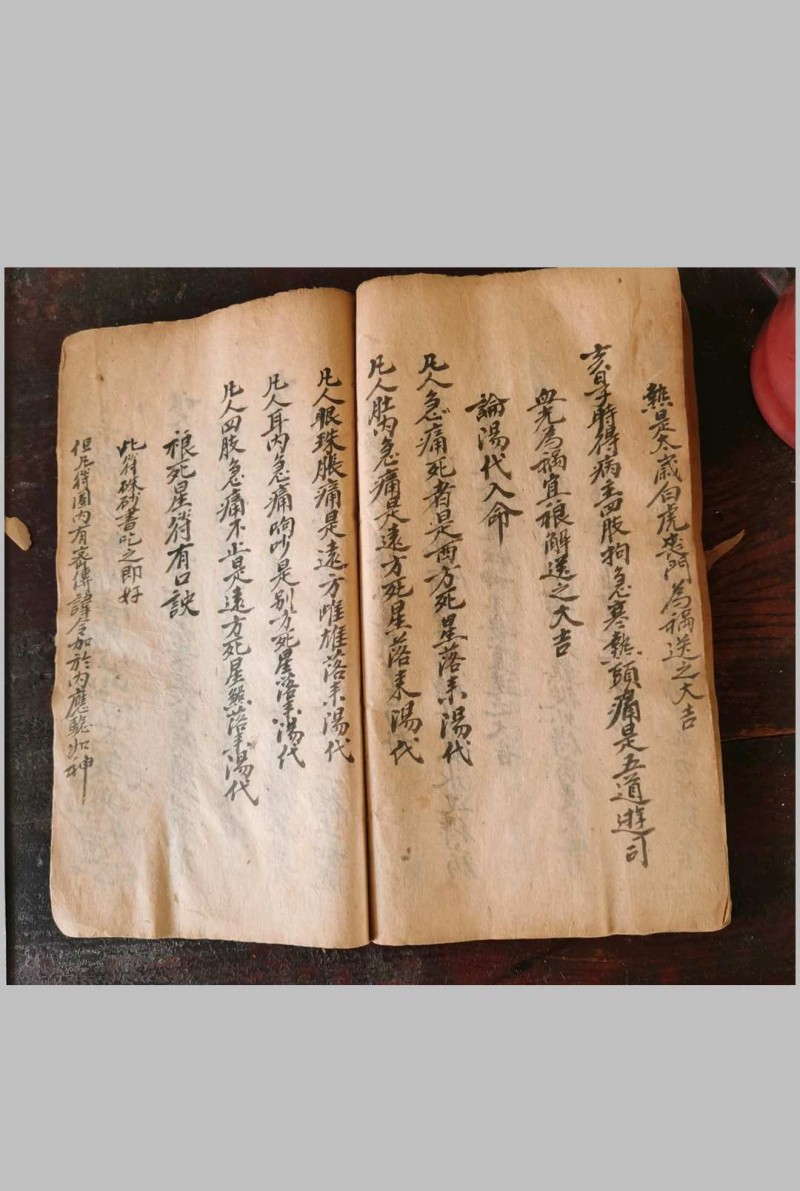 熱是太歲白虎喪門為禍送之大吉
亥日子時得病主四肢拘急寒熱頭痛是五道遊司
血光為禍宜禳解送之大吉
論湯代入命
凡人急痛死者是西方死星落来湯代
凡人肚内急痛是遠方死星落来湯代
凡人眼珠脹痛是遠方雌雄落来湯代
凡人耳内急痛响吵是别方死星落来湯代
凡人四肢急痛不止是遠方死星熊落来湯代
禳死星符有口訣
此符硃砂書吃之即好
但凡符圖内有密傳諱令加於内應驗如神